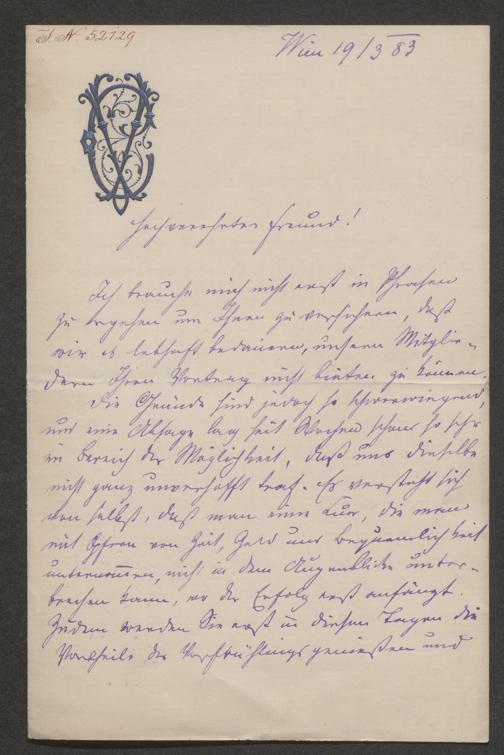 I. N. 52729
Wien 19/3 83
Hochverehrter Freund!
Ich brauche mich nicht erst in Phrasen
zu ergehen um Ihnen zu versichern, daß
wir es lebhaft bedauern, unsern Mitglie-
dern Ihren Vortrag nicht bieten zu können.
Die Gründe sind jedoch so schwerwiegend,
und eine Absage lag seit Wochen schon so sehr
im Bereich der Möglichkeit, daß uns dieselbe
nicht ganz unverhofft traf. Es versteht sich
von selbst, daß man eine Kur, die man
mit Opfern von Zeit, Geld und Bequemlichkeit
unternommen, nicht in dem Augenblicke unter-
brechen kann, wo der Erfolg erst anfängt.
Zudem werden Sie erst in diesen Tagen die
Vortheile des Vorfrühlings genießen und